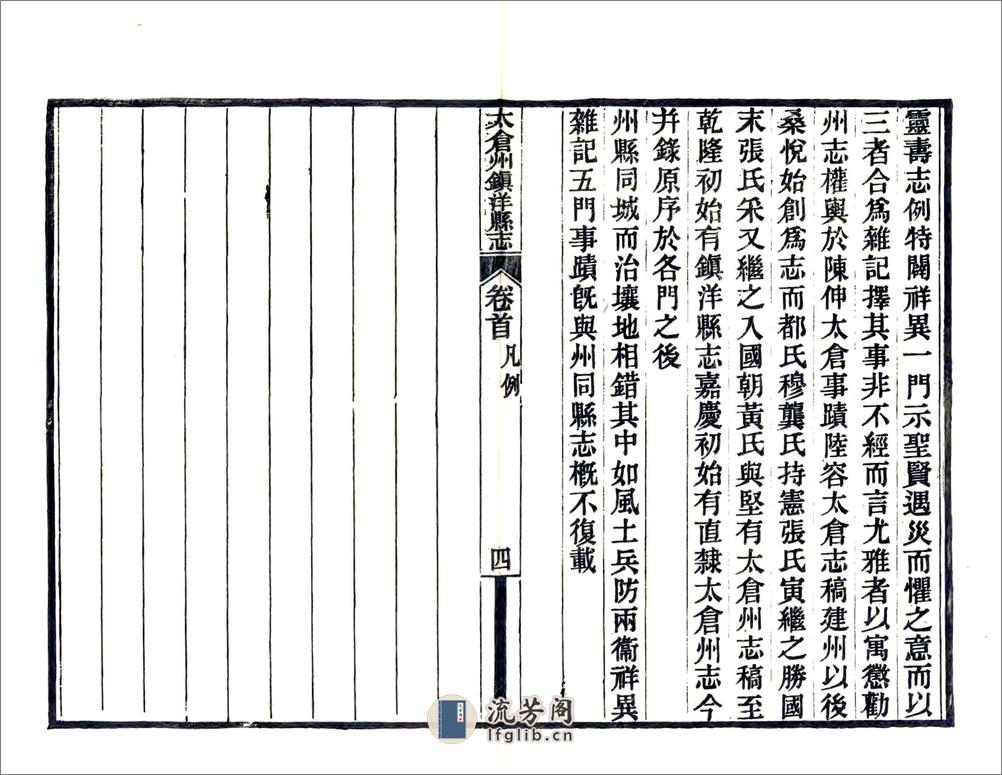 靈壽志例特闢祥異一門示聖賢遇災而懼之意而以
三者合爲雜記擇其事非不經而言尤雅者以寓懲勸
州志權輿於陳伸太倉事蹟陸容太倉志稿建州以後
桑悅始創爲志而都氏穆龔氏持憲張氏寅繼之勝國
末張氏采又繼之入國朝黃氏與堅有太倉州志稿至
乾隆初始有鎭洋縣志嘉慶初始有直隸太倉州志今
并錄原序於各門之後
州縣同城而治壤地相錯其中如風土兵防兩衞祥異
雜記五門事蹟旣與州同縣志槪不復載
太倉州鎭洋縣志
卷首 凡例
四
流芳阁
lfglib.cn